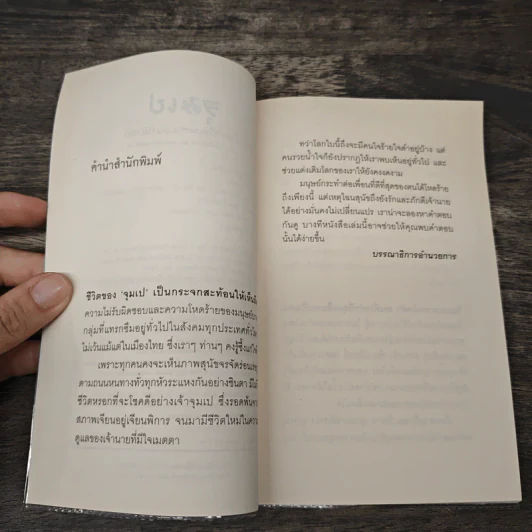 คำนำสำนักพิมพ์
ชีวิตของ 'จุมเป' เป็นกระจกสะท้อนให้เห็นถึง
ความไม่รับผิดชอบและความโหดร้ายของมนุษย์บาง
กลุ่มที่แทรกซึมอยู่ทั่วไปในสังคมทุกประเทศทั่วโลก
ไม่เว้นแม้แต่ในเมืองไทย ซึ่งเราๆ ท่านๆ คงรู้ซึ้งแก่ใจ
เพราะทุกคนคงจะเห็นภาพสุนัขจรจัดร่อนเร่
ตามถนนหนทางทั่วทุกหัวระแหงกันอย่างชินตา
ชีวิตหรอกที่จะโชคดีอย่างเจ้าจุมเป ซึ่งรอดพ้น
สภาพเจียนอยู่เจียนพิการ จนมามีชีวิตใหม่ใน
ดูแลของเจ้านายที่มีใจเมตตา
ทว่าโลกใบนี้ถึงจะมีคนใจร้ายใจดำอยู่บ้าง แต่
คนรวยน้ำใจก็ยังปรากฏให้เราพบเห็นอยู่ทั่วไป และ
ช่วยแต่งเติมโลกของเราให้ยังคงงดงาม
มนุษย์กระทำต่อเพื่อนที่ดีที่สุดของตนได้โหดร้าย
ถึงเพียงนี้ แต่เหตุไฉนสุนัขถึงยังรักและภักดีเจ้านาย
ได้อย่างมั่นคงไม่เปลี่ยนแปร เราน่าจะลองหาคำตอบ
กันดู บางทีหนังสือเล่มนี้อาจช่วยให้คุณพบคำตอบ
นั้นได้ง่ายขึ้น
บรรณาธิการอำนวยการ